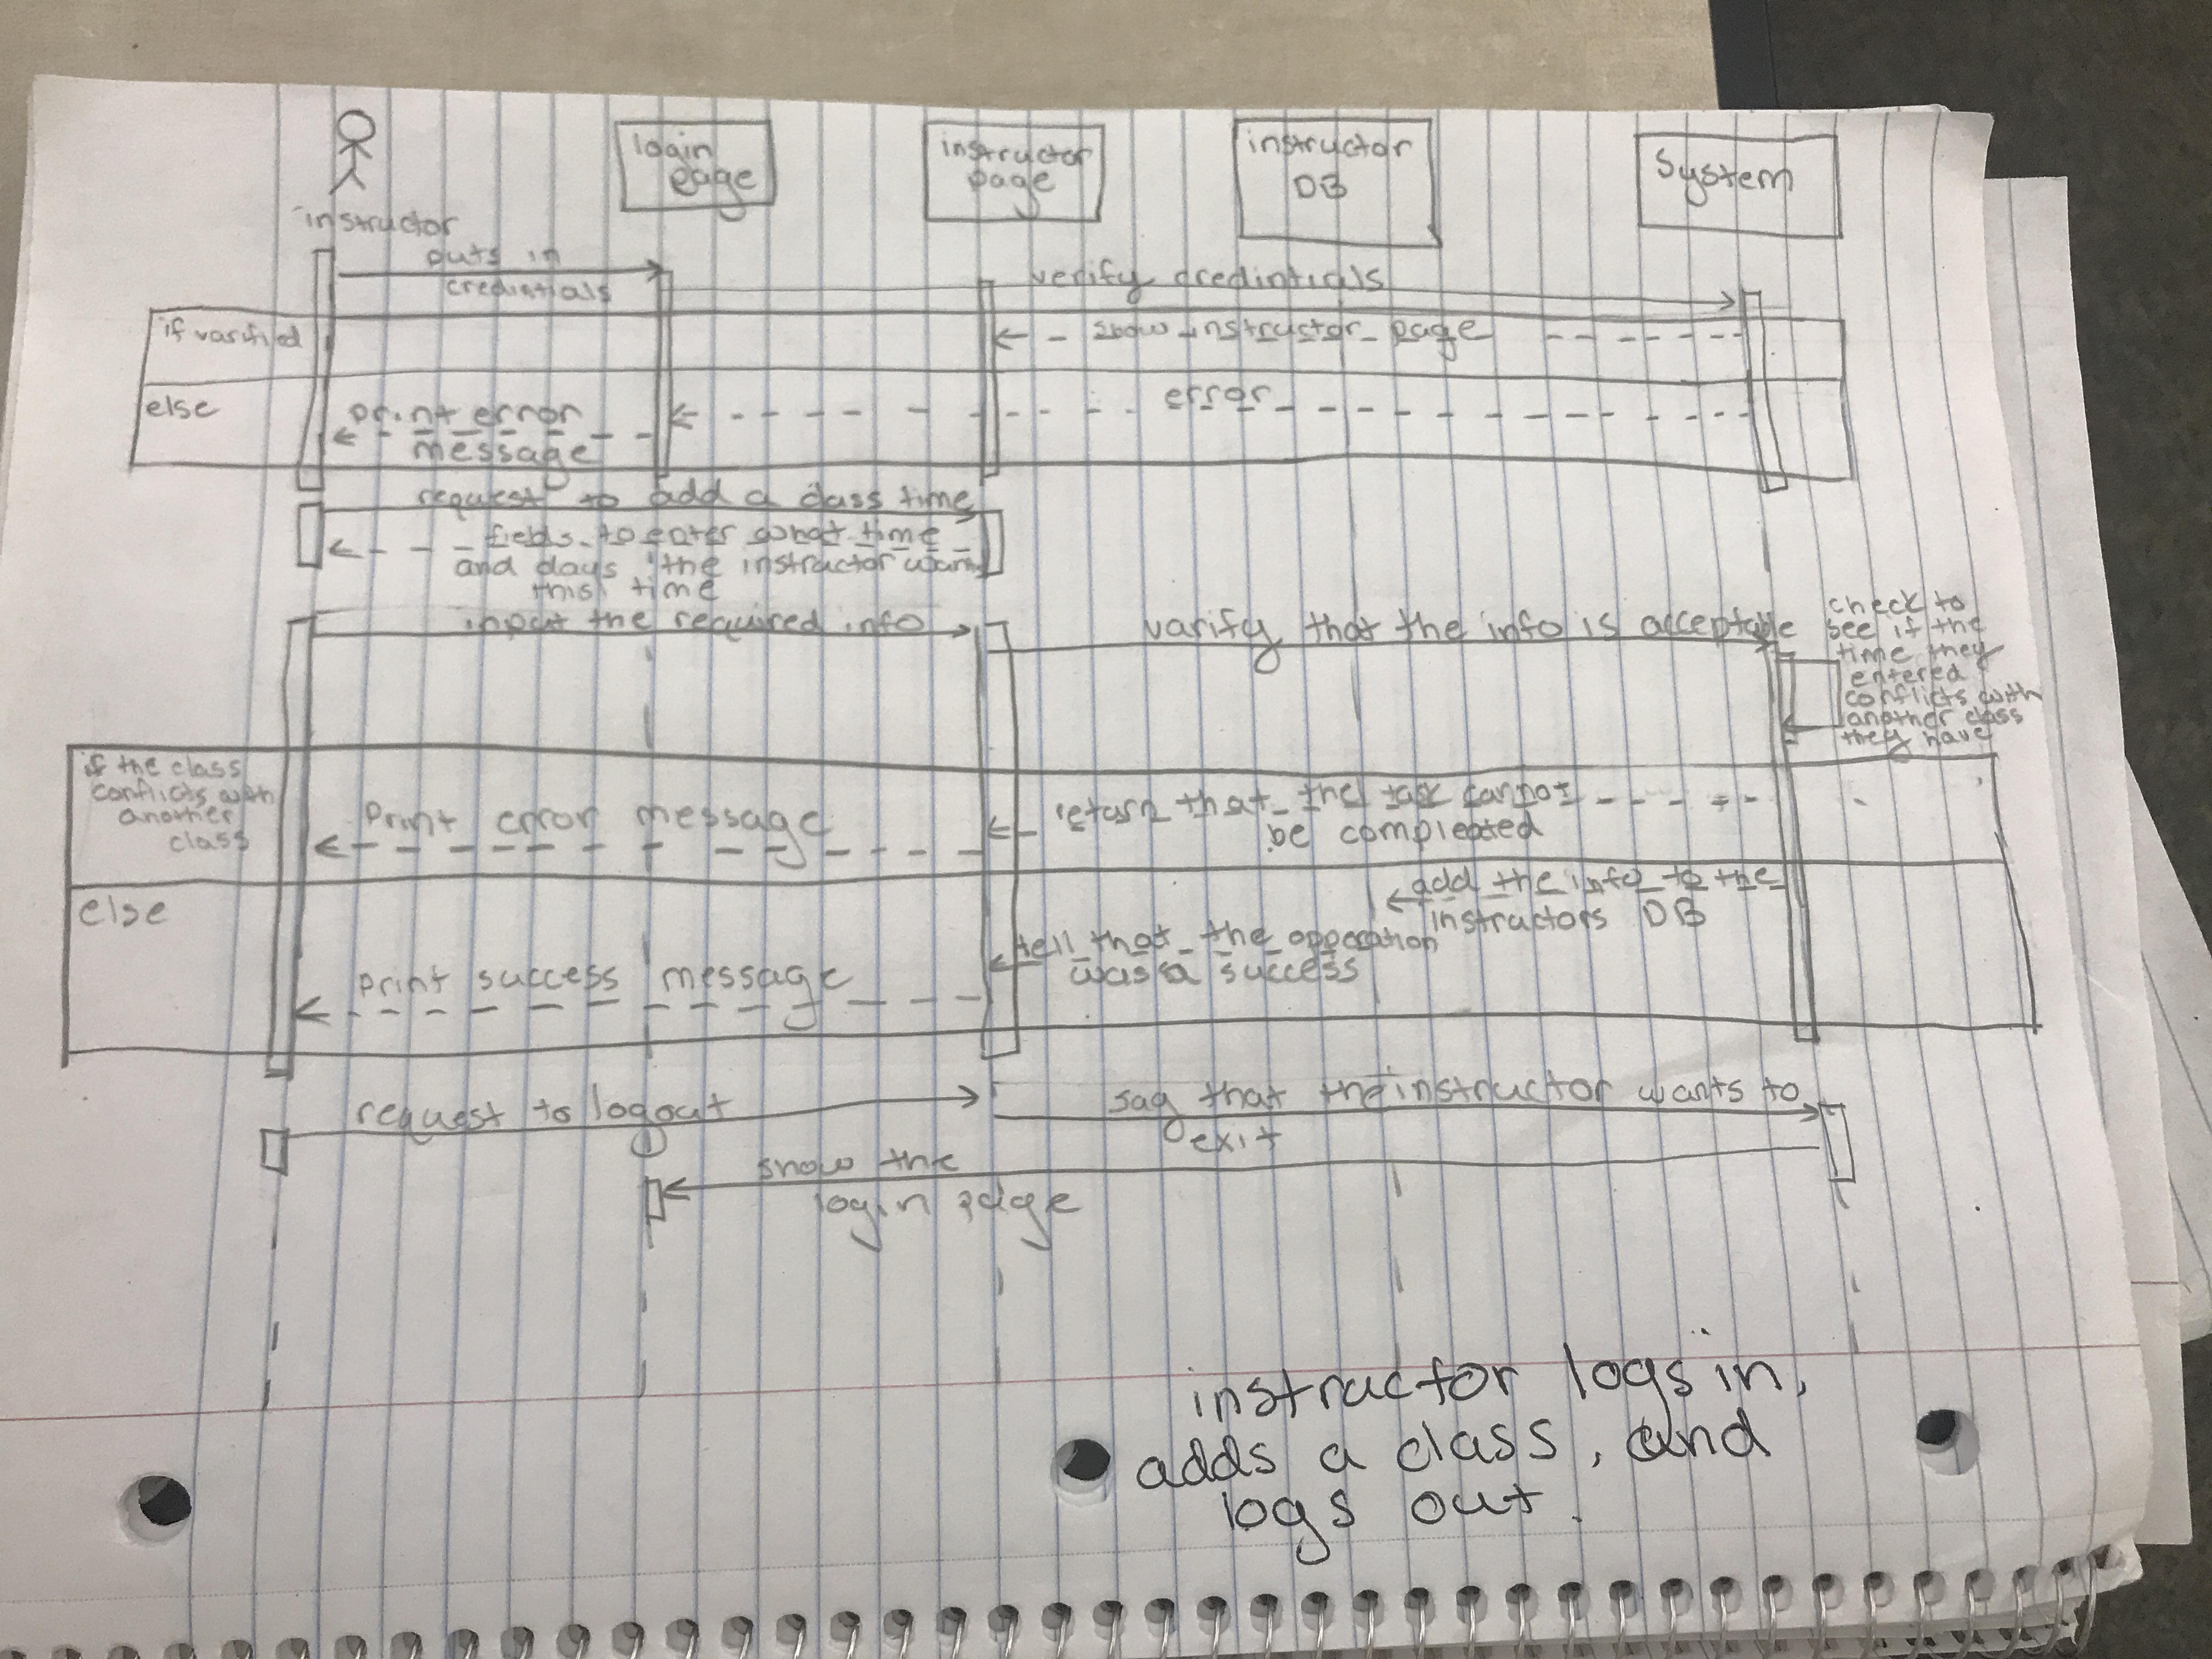 instructor
login
page
instructor
page
instructor
DB
System
puts in
credintials
verify credintials
if varified
show instructor page
else
error
print error
message
request to add a class time
fields to enter what time
and days the instructor wants
this time
input the required info
varify that the info is acceptable
check to
see if the
time they
entered
conflicts with
another class
they have
if the class
conflicts with
another
class
Print error message
return that the task cannot
be compleated
else
add the info to the
instructors DB
tell that the opperation
was a success
Print success message
request to logout
say that the instructor wants to
exit
show the
login page
instructor logs in,
adds a class, and
logs out.